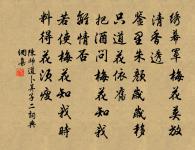 綺幕罩梅花莫放
清香透
鬢星朱顏歲歲移
只道花依舊
把酒問梅花知我
離情否
若使梅花知我時
料得花須瘦
陳師道卜算子二詞典
網集